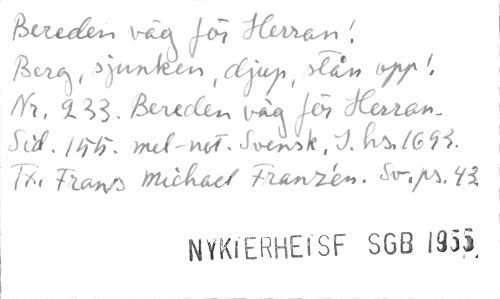 Bereden väg för Herran!
Berg, sjunken, djup, stån opp!
Nr. 233. Bereden väg för Herran.
Sid. 155. mel-not. Svensk, I. hs. 1693.
Tx. Frans Michael Franzén. Sv. ps. 43
NYKIERHEISF SGB 1955.